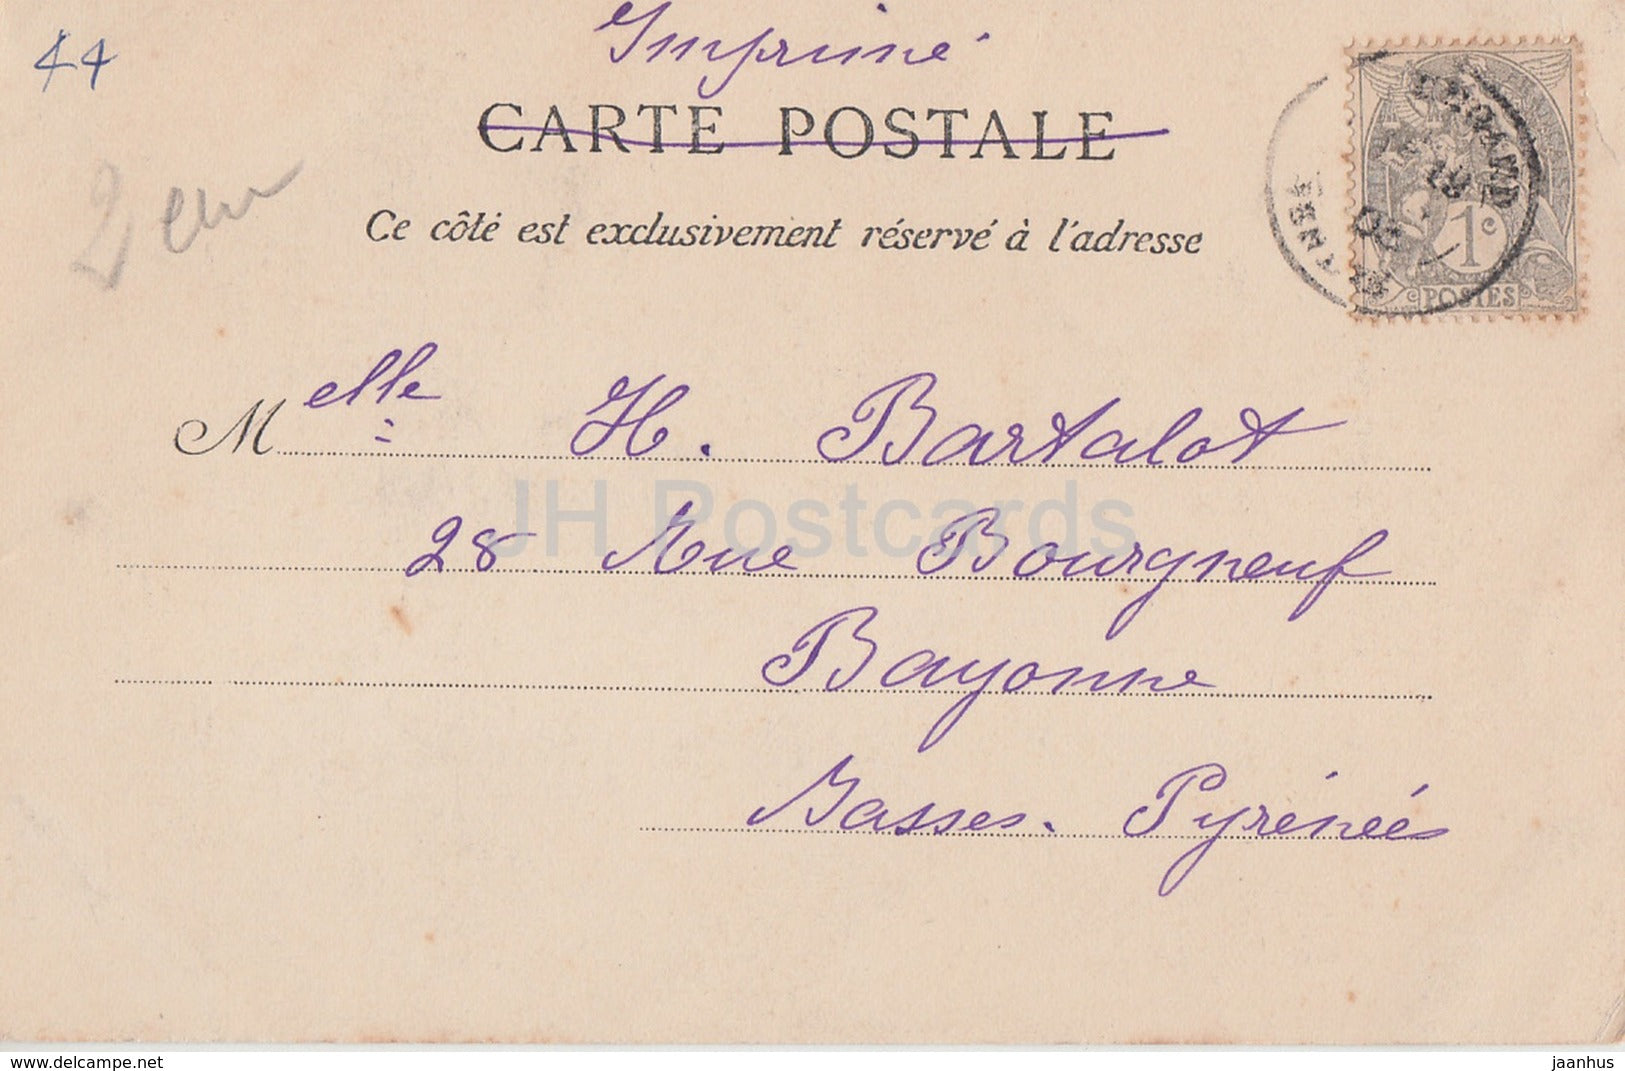 44
Imprimé
CARTE POSTALE
2 eur
Ce côté est exclusivement réservé à l'adresse
1c
POSTES
03
Melle H. Bartalot
JH Postcards
28 Rue Bourgneuf
Bayonne
Basses-Pyrénées
www.delcampe.net
jaanhus